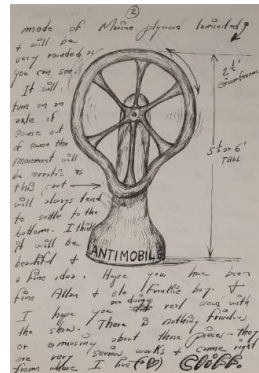 ②
made of Marine plywood laminated
& will be
very rounded as
you can see.
It will
turn on an
axle of
some sort
of
some the
movement will
be erratic as
this part →
will always tend
to settle to the
bottom. I think
it will be
beautiful &
a fine idea. Hope you have been
fine Allan & ole Frantic boy. &
I hope you are doing real well with
the show. There is nothing frivolous
or amusing about these pieces - they
are very serious works & come right
from where I live
Cliff.
5½ or 6'
TALL
ANTIMOBILE